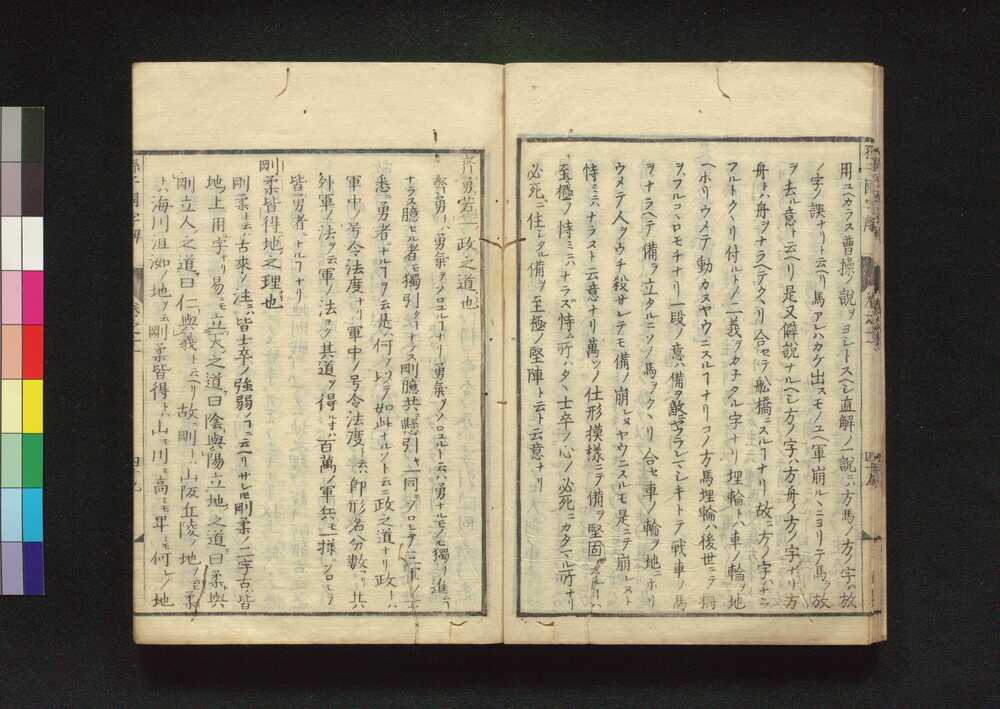 用ユベカラス曹操ノ説ヲヨシトスレシ直解ノ一説ニハ方馬ノ方ノ字ハ放
ノ字ノ誤ナリト云ヘリ馬アレハカケ出スモノユヘ軍崩ルヽニヨリテ馬ヲ放
ヲ去ル意ト云ヘリ是又僻説ナルヘシ方ノ字ハ方舟ノ方ノ字ナリ方
舟トハ舟ヲナラヘテクヽリ合セテ舩橋ニスルフナリ故ニ方ノ字ハナニ
フルトクヽリ付ルトノ二義ヲカチタル字ナリ埋輪トハ車ノ輪ヲ地
ヘホリウメテ動カヌヤウニスルフナリコノ方馬埋輪ハ後世ニテ柵
ヲフルコヽロモチナリ一段ノ意ハ備ヲ敵ニヤフラレマシキトテ戦車ノ馬
ヲナラヘテ備ヲ立タルニソノ馬ヲクヽリ合セ車ノ輪ヲ地ニホリ
ウメテ人ヲウチ殺サレテモ備ノ崩レヌヤウニスルモ是ニテ崩レスト
恃ミニナラスト云意ナリ萬ツノ仕形模様ニテ備ヲ堅固ニスルハ
至極ノ恃ミニハナラズ恃ム所ハタヽ士卒ノ心ノ必死ニカタマル所ナリ
必死ニ住シタル備ヲ至極ノ堅陣ト云ト云意ナリ
齊勇若一政之道也
齊勇トハ勇氣ヲソロユルフナリ勇氣ヲソロユルト云ハ勇ナルモノ獨リ進ミ
ナラス臆セル者モ獨引クフナラス剛臆共ニ懸引キ一同ニソロヒテ三軍ノ士
悉ク勇者ニナルフヲ云是ハ何ヲ以テ如此ナルソト云ニ政之道ナリ政トハ
軍中ノ号令法度ナリ軍中ノ号令法度ト云ハ即形名分數ナリ共
外軍ノ法ヲ云軍ノ法ヲ其道ヲ得ルトキハ百萬ノ軍兵モ一様ニソロヒテ
皆勇者ニナルフナリ
剛柔皆得地之理也
剛柔トハ古來ノ注ニハ皆士卒ノ強弱ノフニ云ヘリサレ𪜈剛柔ノ二字古ハ皆
地ノ上ニ用ル字ナリ易ニモ立天之道曰陰與陽立地之道曰柔與
剛立人之道曰仁與義ト云ヘリ故ニ剛トハ山阪丘陵ノ地ヲ云柔
トハ海川沮洳ノ地ヲ云剛柔皆得トハ山モ川モ高キモ卑キモ何レノ地
孫子國字解
卷之
四十九